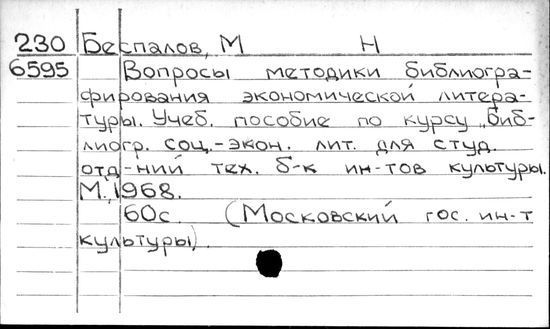 230 Беспалов, М Н
6595 Вопросы методики библиогра-
фирования экономической литера-
туры. Учеб. пособие по курсу „Биб-
лиогр. соц.-экон. лит. для студ.
отд-ний тех. б-к ин-тов культуры.
М., 1968.
60с. (Московский гос. ин-т
культуры).